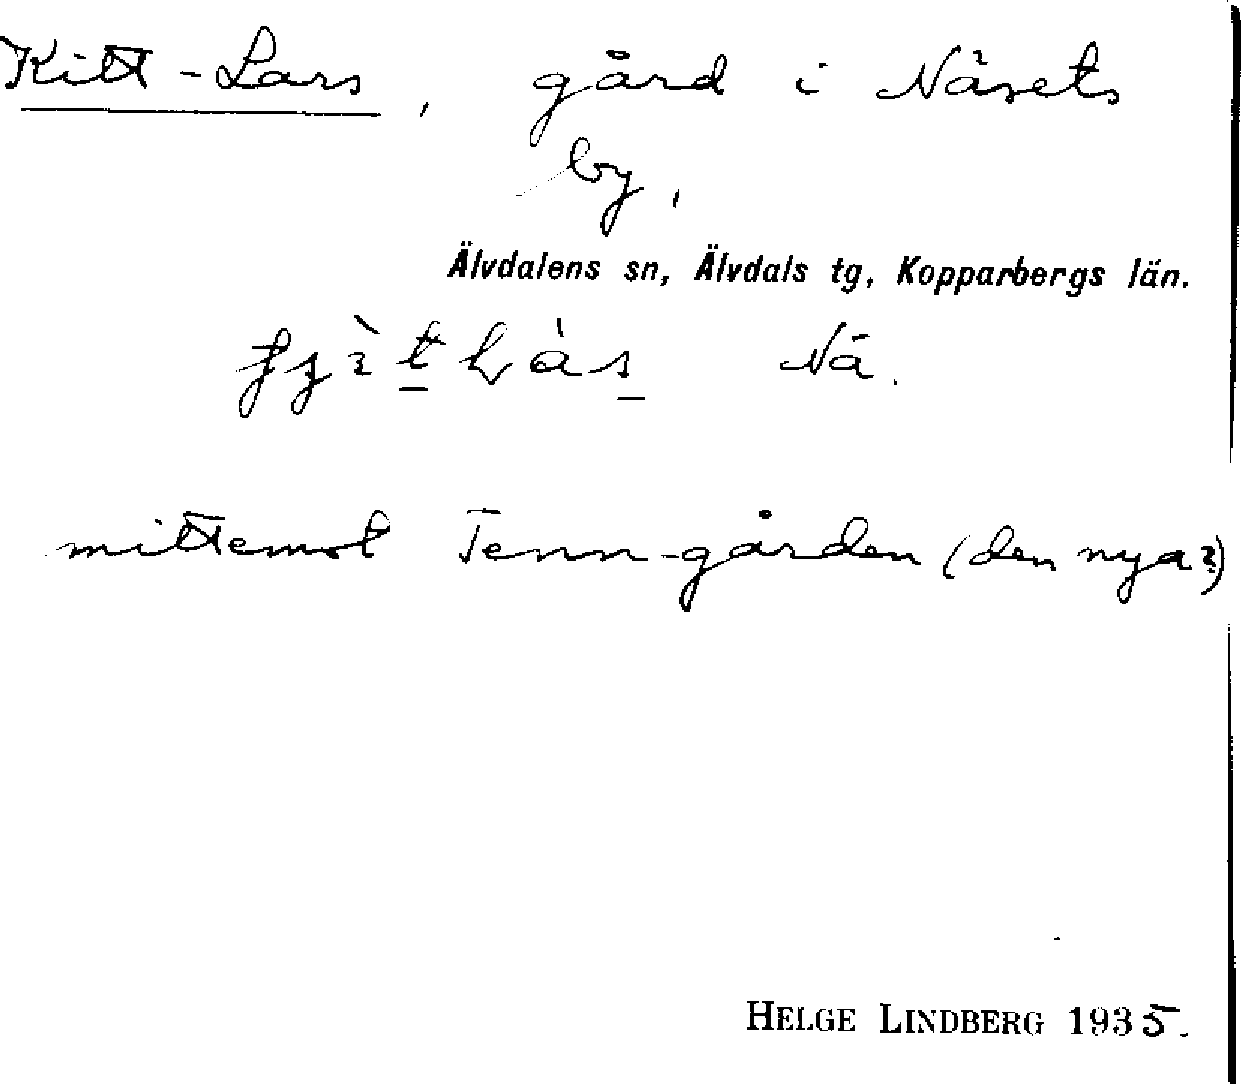 Kitt-Lars, gård i Näsets
by,
Älvdalens sn, Älvdals tg, Kopparbergs län.
Nä.
mittemot Tenn-gården (den nya?)
HELGE LINDBERG 1935.